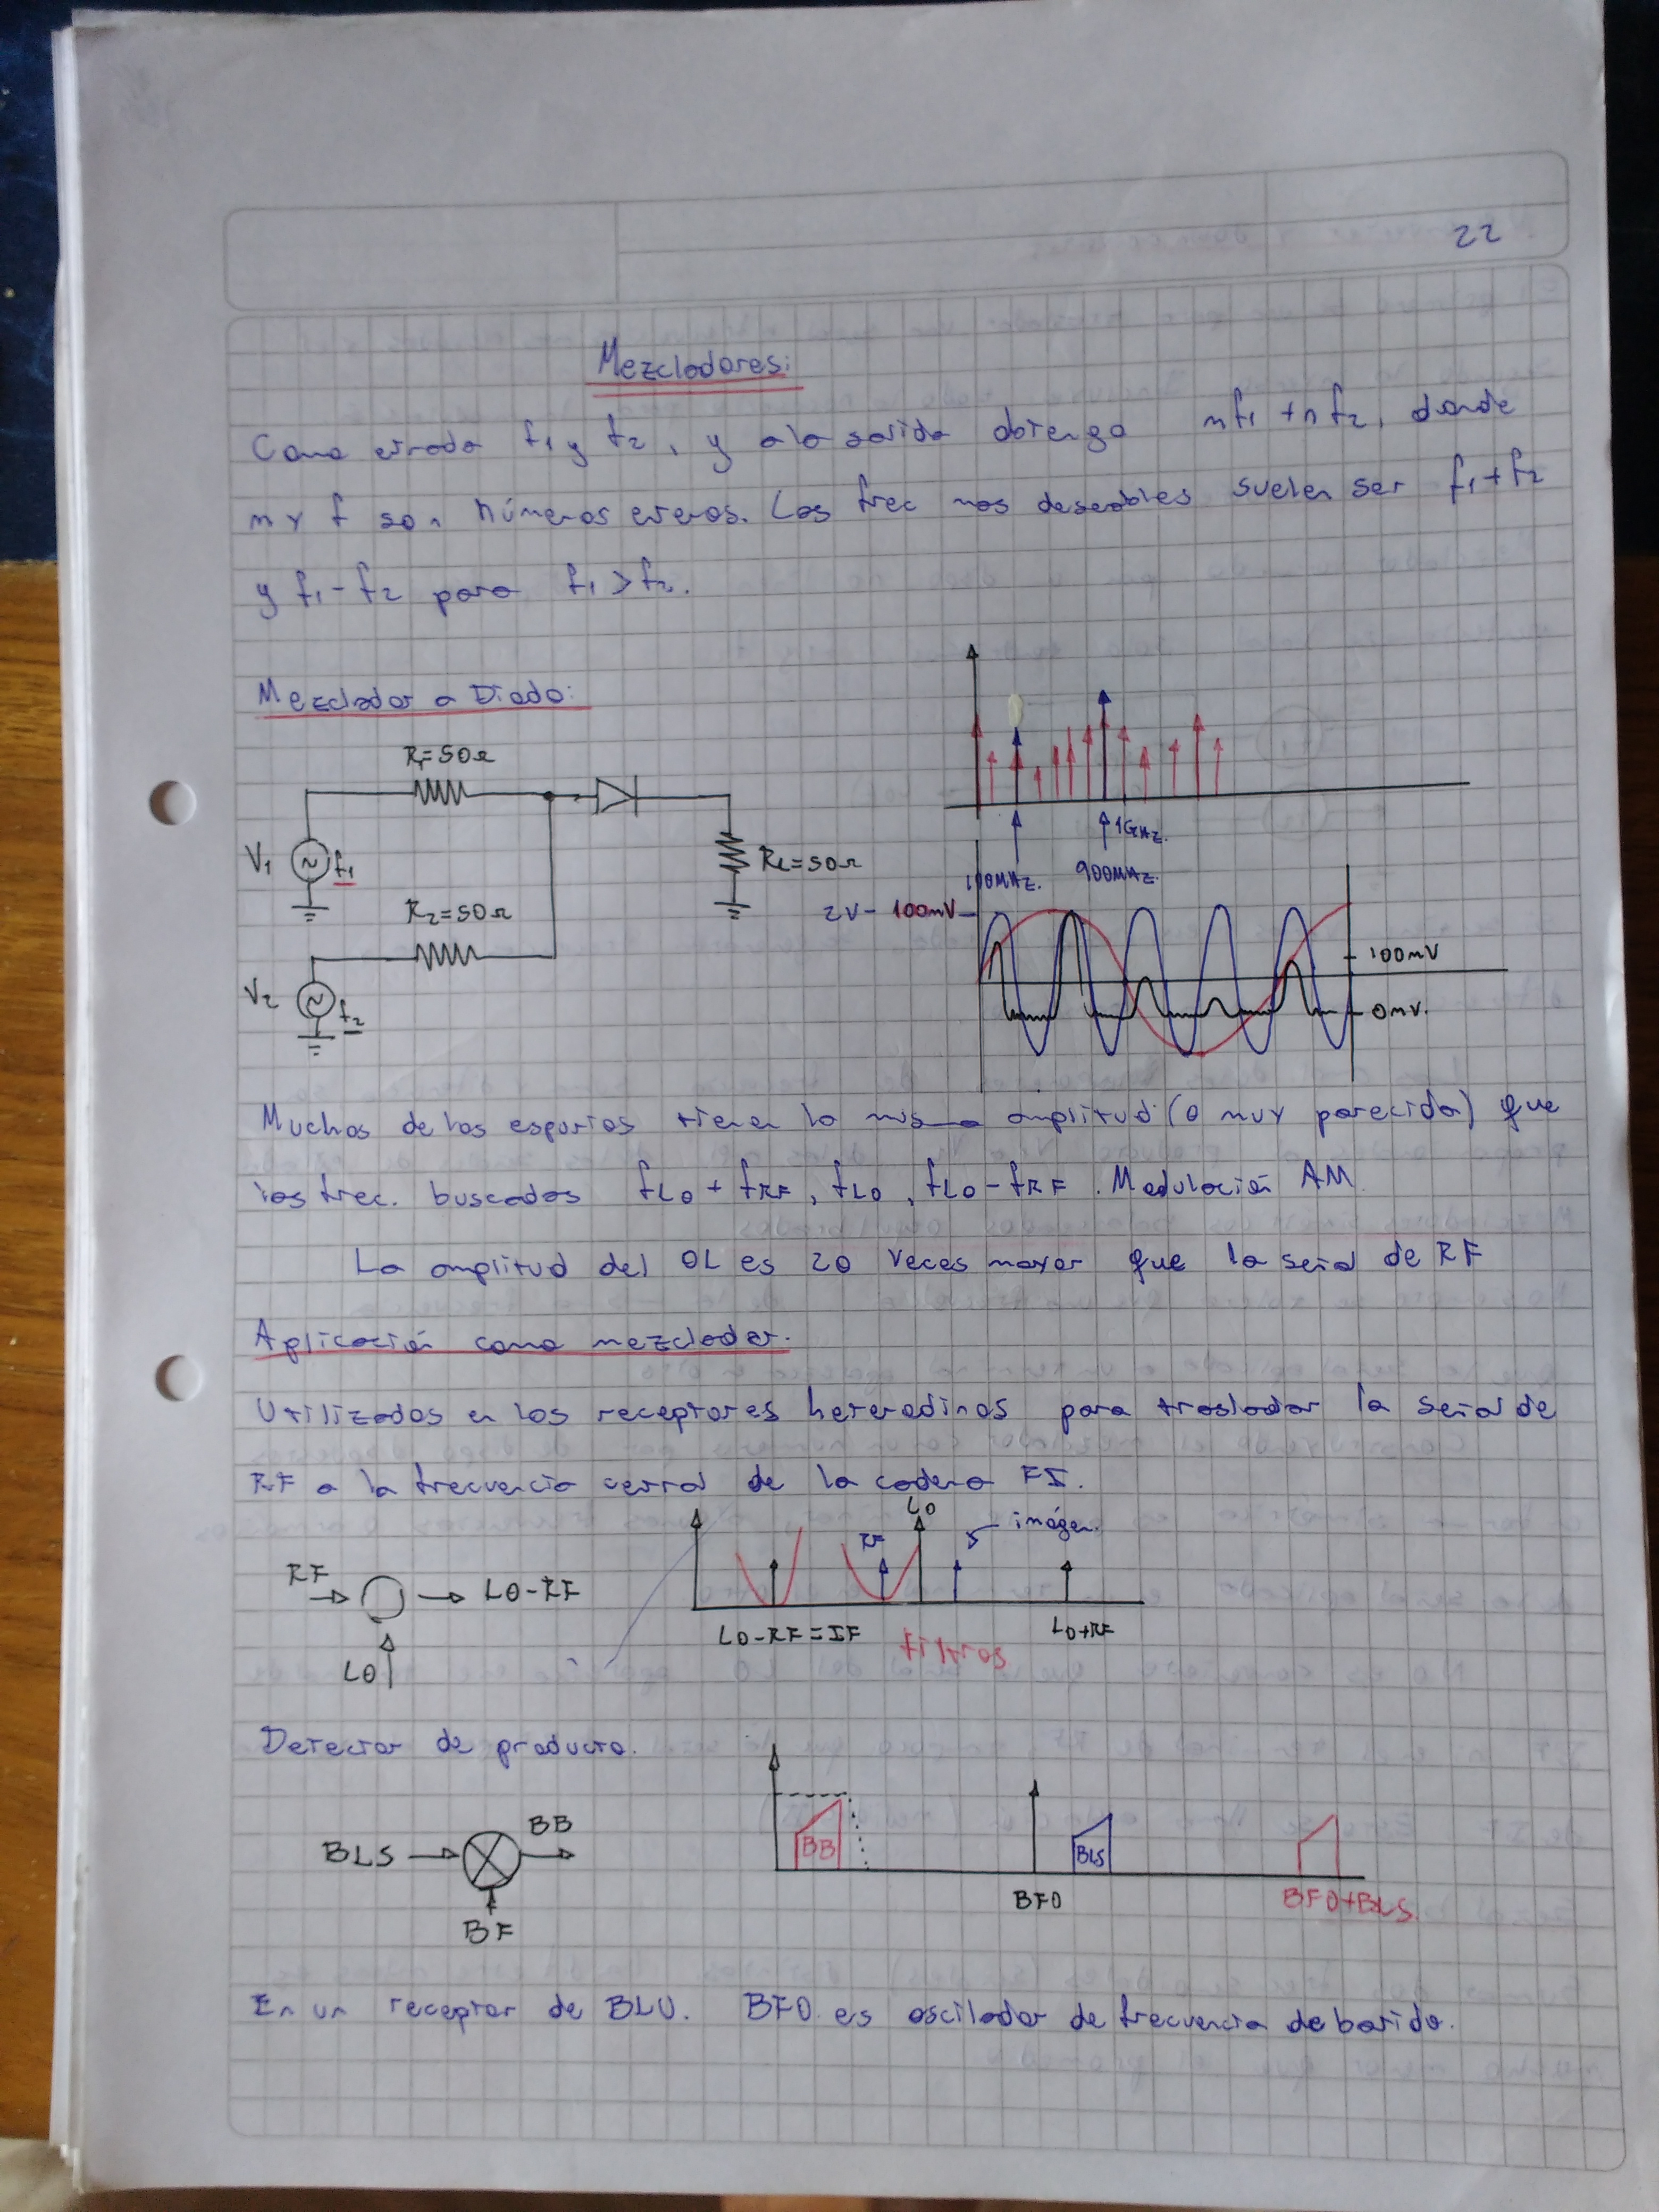 22
Mezcladores:
Como entrada f1 y f2, y a la salida obtengo mf1 + nf2, donde
m y f son números enteros. Las frec mas deseables suelen ser f1+f2
y f1-f2 para f1 > f2.
Mezclador a Diodo:
R1=50Ω
V1 f1
RL=50Ω
R2=50Ω
V2 f2
1GHz.
100MHz. 900MHz.
2V- 100mV-
100mV
0mV.
Muchos de los espurios tienen la misma amplitud (o muy parecida) que
las frec. buscadas fLO + fRF, fLO, fLO-fRF. Modulación AM.
La amplitud del OL es 20 veces mayor que la señal de RF
Aplicación como mezclador.
Utilizados en los receptores heterodinos para trasladar la señal de
RF a la frecuencia central de la cadena FI.
RF LO-RF
LO
RF LO imágen.
LO-RF=IF filtros LO+RF
Detector de producto.
BLS BB
BF
BB BLS
BFO BFO+BLS.
En un receptor de BLU. BFO es oscilador de frecuencia de batido.